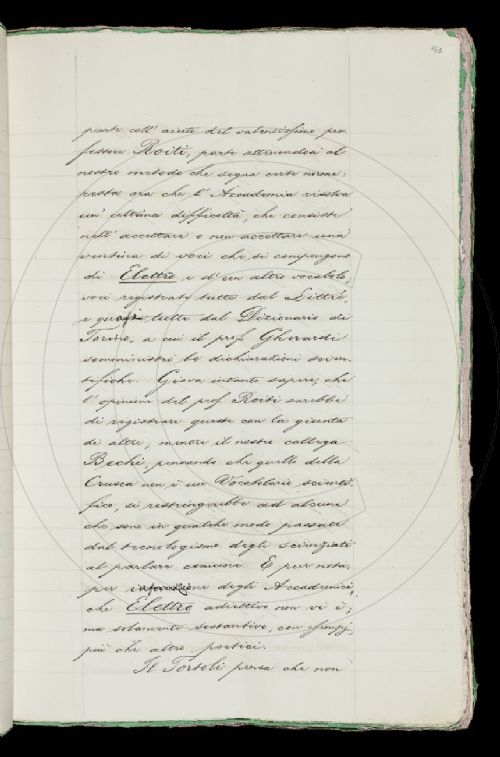 143
parte coll' aiuto del valentissimo pro
fessore Roiti, parte attenendosi al
nostro metodo che segna certe norme;
resta ora che l' Accademia risolva
un' ultima difficoltà, che consiste
nell' accettare o non accettare una
ventina di voci che si compongono
di Elettro e d' un altro vocabolo,
voci registrate tutte dal Littré,
e quasi tutte dal Dizionario di
Torino, a cui il prof. Gherardi
somministrò le dichiarazioni scien-
tifiche. Giova intanto sapere, che
l' opinione del prof. Roiti sarebbe
di registrare queste con la giunta
di altre, mentre il nostro collega
Bechi, pensando che quello della
Crusca non è un Vocabolario scienti-
fico, si restringerebbe ad alcune
che sono in qualche modo passate
dal tecnologismo degli scienziati
al parlare comune. E pur nota,
per informazione degli Accademici,
che Elettro adiettivo non vi è;
ma solamente sostantivo, con esempj
più che altro poetici.
Il Tortoli pensa che non